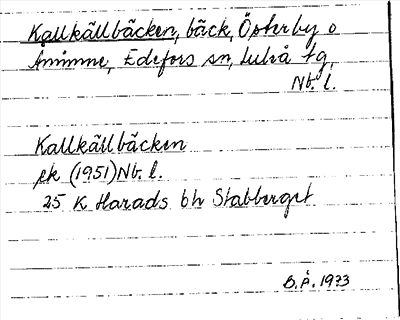 Kallkällbäcken, bäck, Österby o
Åminne, Edefors sn, Luleå tg,
Nb. l.
Kallkällbäcken
ek (1951) Nb. l.
25 K Harads bh Stabberget
B.Å. 1973